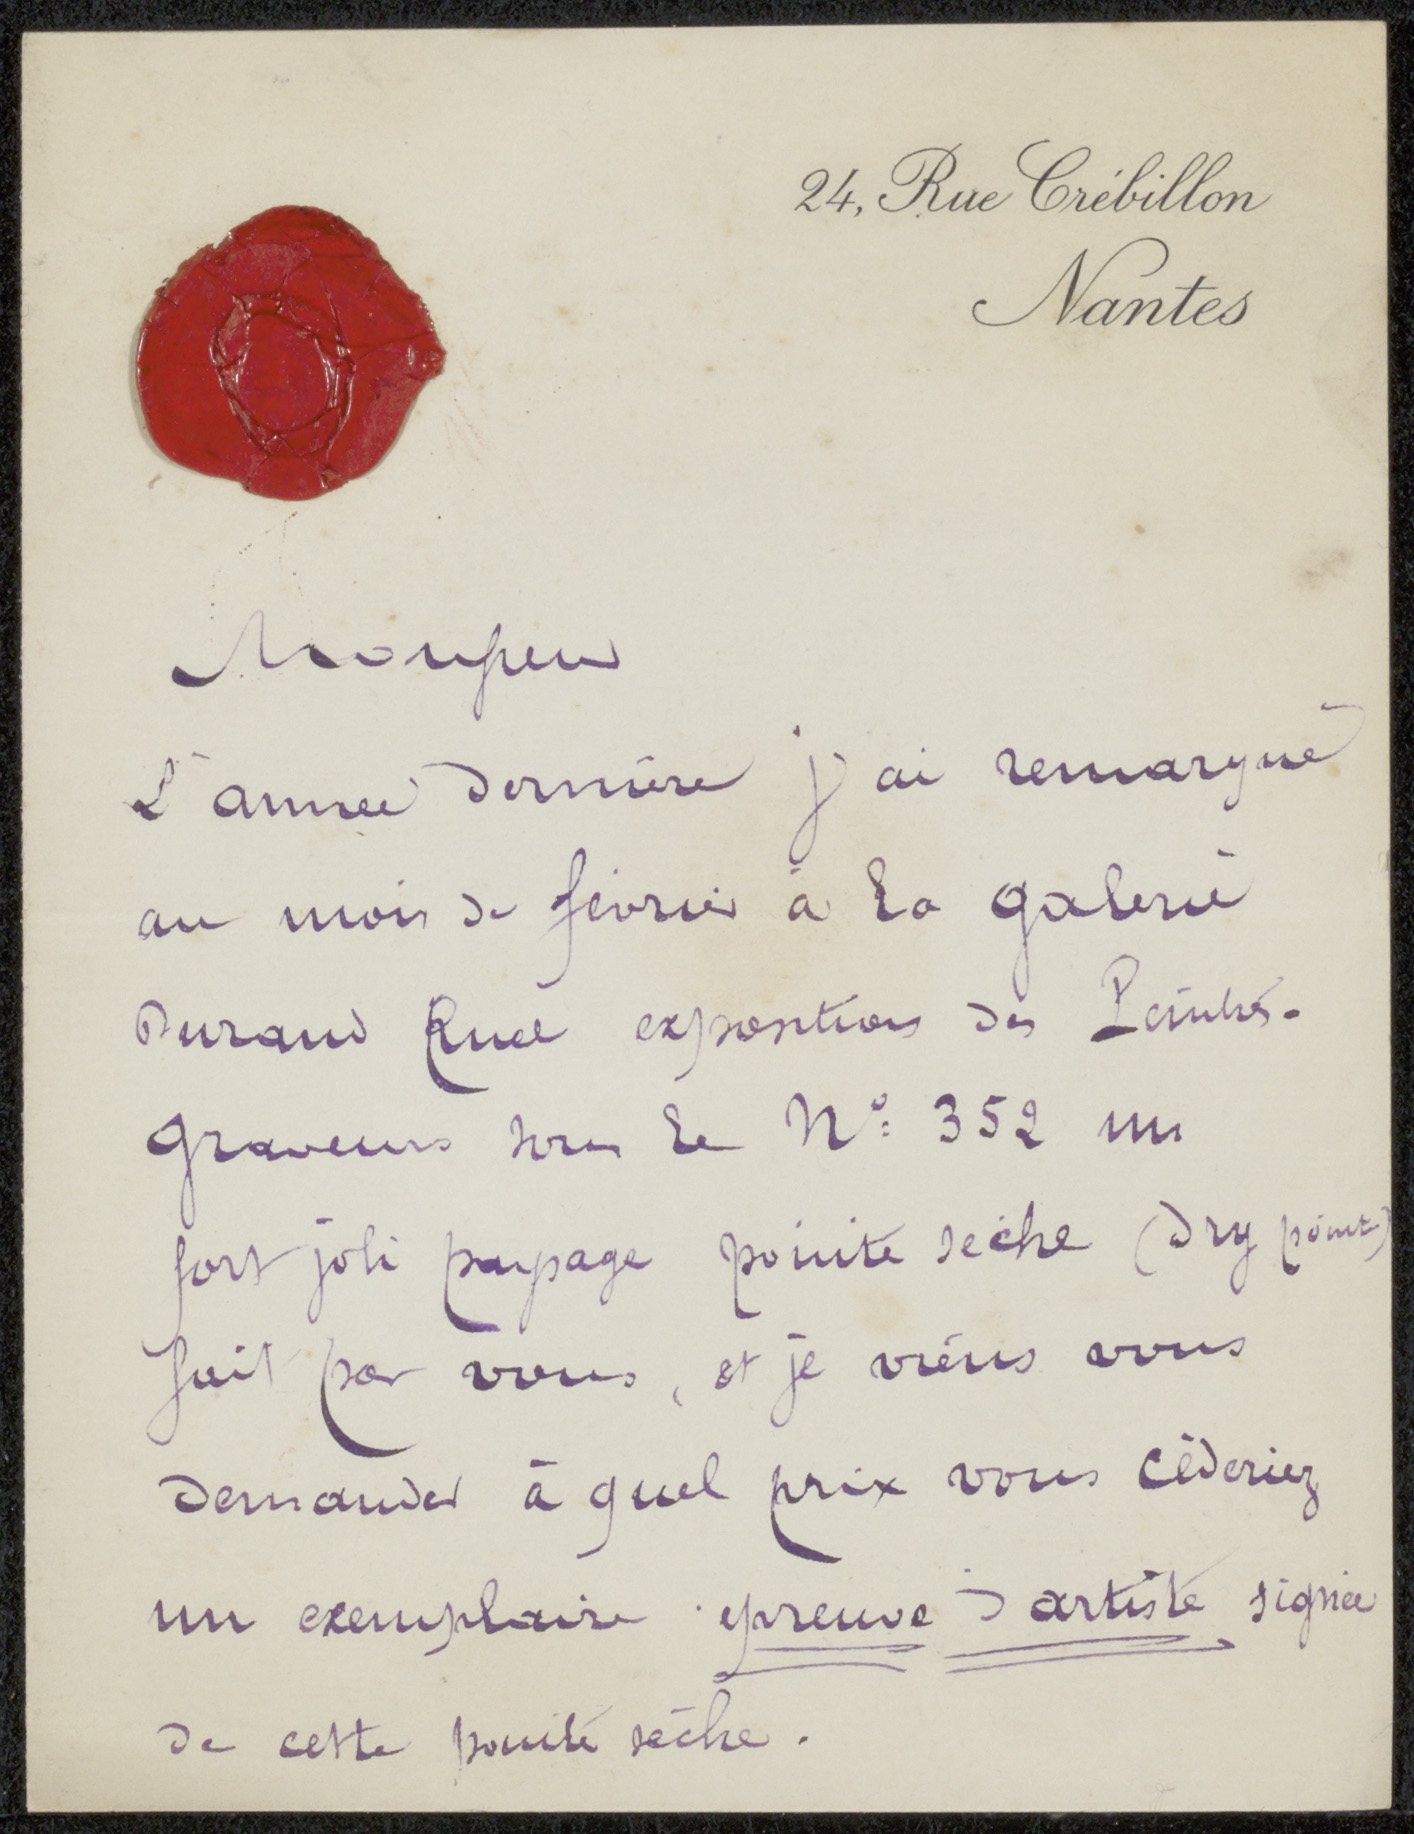 24, Rue Crébillon
Nantes
Monsieur
L'année dernière j'ai remarqué
au mois de février à la galerie
Durand Ruel exposition des Peintres-
graveurs sous le No: 352 un
fort joli paysage pointe sèche (dry point)
fait par vous, et je viens vous
demander à quel prix vous céderiez
un exemplaire épreuve d'artiste signée
de cette pointe sèche.